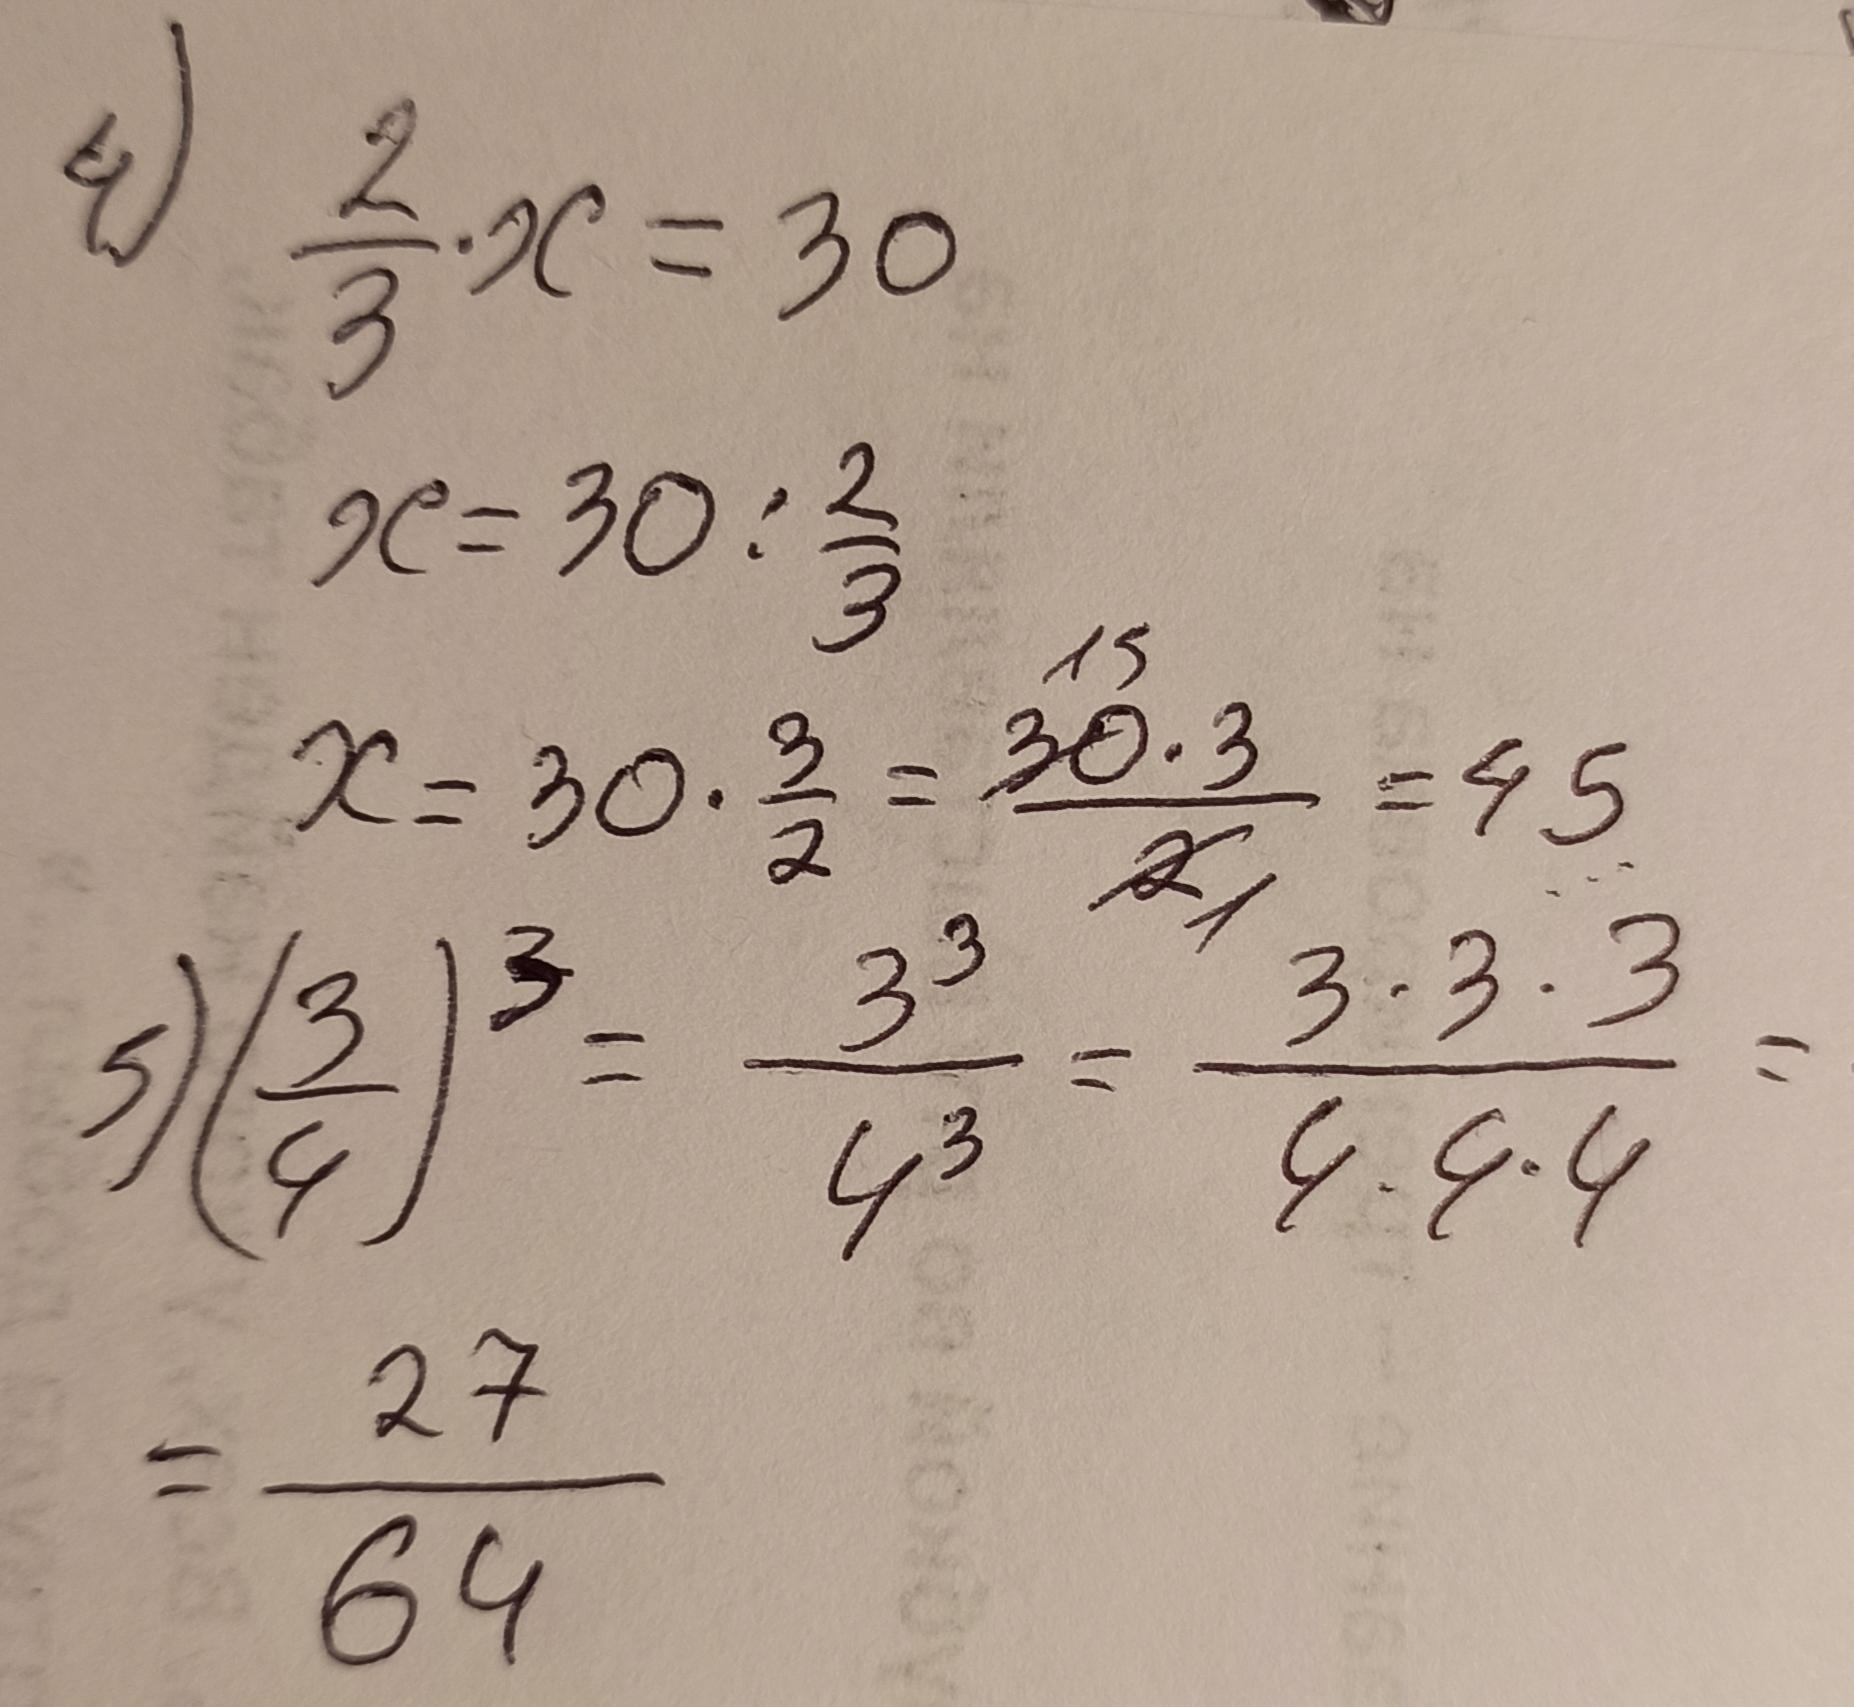 4) 2/3 · x = 30
x = 30 : 2/3
x = 30 · 3/2 = 30 · 3 / 2 = 45
15
1
5) (3/4)³ = 3³/4³ = 3 · 3 · 3 / 4 · 4 · 4 =
= 27/64